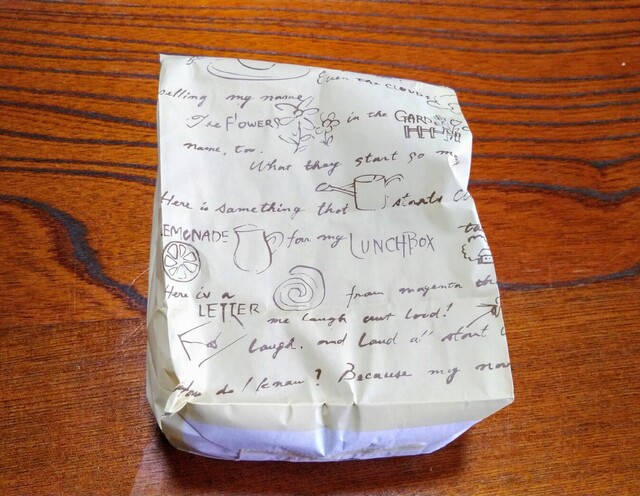 Even the CLOUDS
selling my name
The FLOWERS in the GARDEN
name, too.
What they start so my
Here is something that starts
LEMONADE for my LUNCHBOX
Here is a LETTER from magenta
me laugh out loud!
laugh, and loud all start
How do I know? Because my